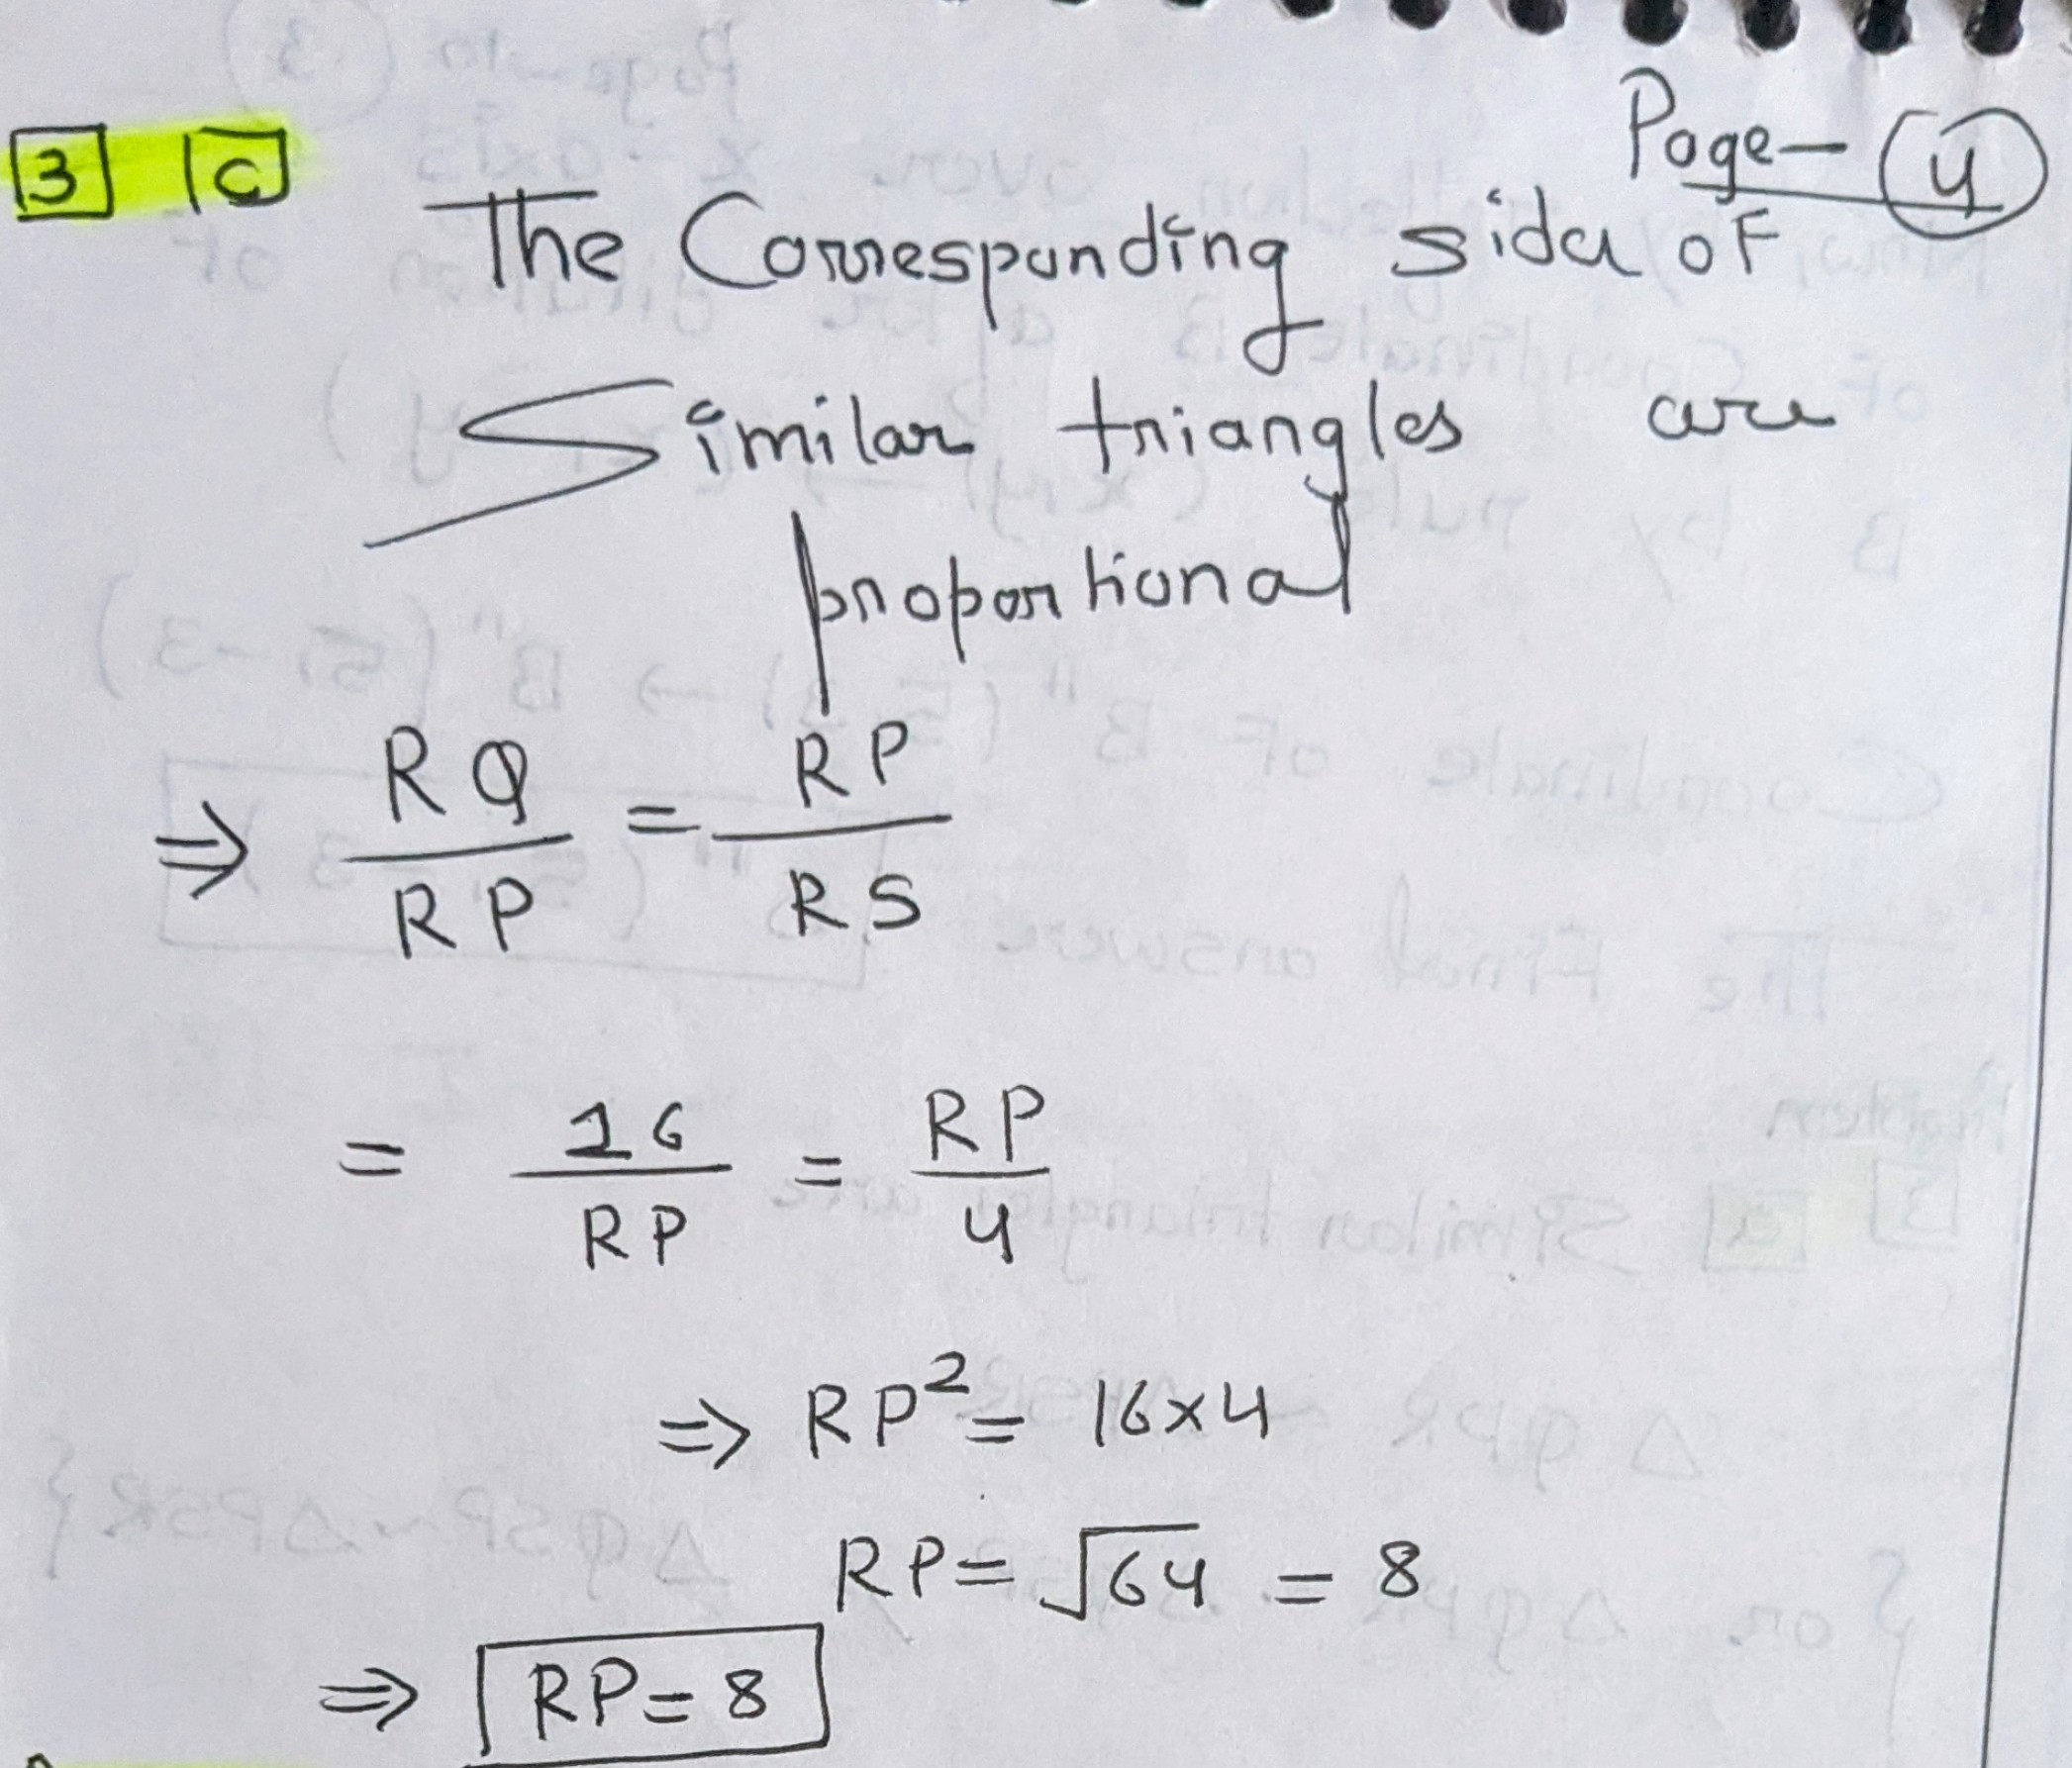 Page - 4
3 C
The Corresponding side of
Similar triangles are
proportional
⇒ RQ/RP = RP/RS
= 16/RP = RP/4
⇒ RP² = 16×4
RP = √64 = 8
⇒ RP = 8